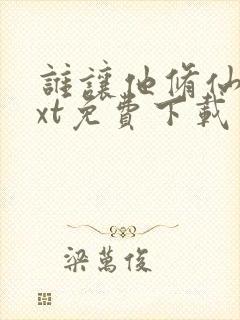 誰讓他脩仙
xt免費下載
梁萬俊